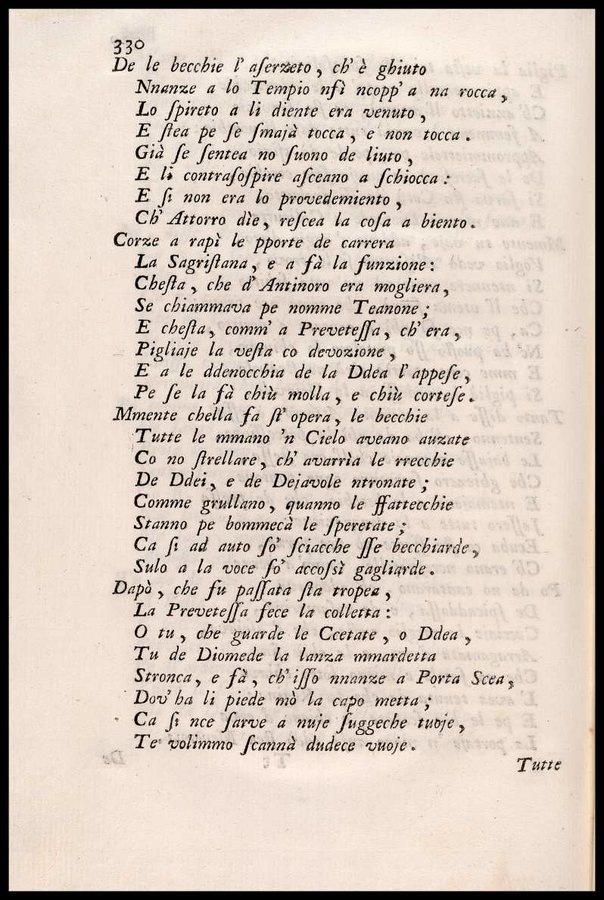 330
De le becchie l' aſerzeto, ch' è ghiuto
Nnanze a lo Tempio nſì ncopp' a na rocca,
Lo ſpireto a li diente era venuto,
E ſtea pe ſe ſmajà tocca, e non tocca.
Già ſe ſentea no ſuono de liuto,
E li contraſoſpire aſceano a ſchiocca:
E ſi non era lo provedemiento,
Ch' Attorro dìe, reſcea la coſa a biento.
Corze a rapì le pporte de carrera
La Sagriſtana, e a fà la funzione:
Cheſta, che d' Antinoro era mogliera,
Se chiammava pe nomme Teanone;
E cheſta, comm' a Preveteſſa, ch' era,
Pigliaje la veſta co devozione,
E a le ddenocchia de la Ddea l' appeſe,
Pe ſe la fà chiù molla, e chiù corteſe.
Mmente chella fa ſt' opera, le becchie
Tutte le mmano 'n Cielo aveano auzate
Co no ſtrellare, ch' avarrìa le rrecchie
De Ddei, e de Dejavole ntronate;
Comme grullano, quanno le ffattecchie
Stanno pe bommecà le ſperetate;
Ca ſi ad auto ſo' ſciacche ſſe becchiarde,
Sulo a la voce ſo' accoſsì gagliarde.
Dapò, che fu paſſata ſta tropea,
La Preveteſſa fece la colletta:
O tu, che guarde le Ccetate, o Ddea,
Tu de Diomede la lanza mmardetta
Stronca, e fà, ch' iſſo nnanze a Porta Scea,
Dov' ha li piede mò la capo metta;
Ca ſi nce ſarve a nuje ſuggeche tuoje,
Te volimmo ſcannà dudece vuoje.
Tutte